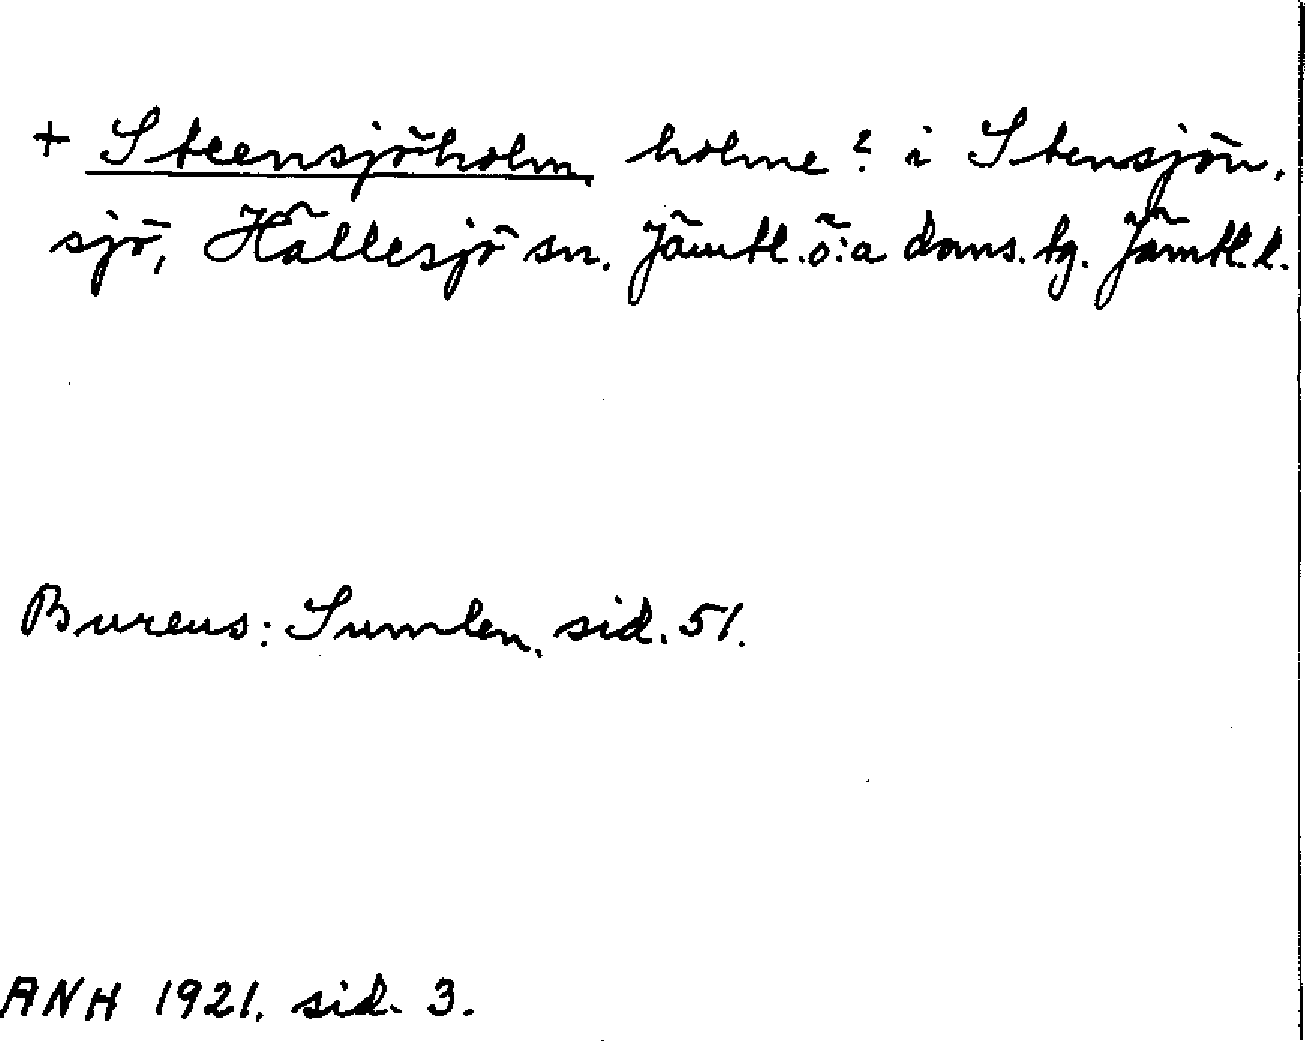 + Steensjöholm, holme? i Stensjön,
sjö, Hällesjö sn. Jämtl. ö:a doms. tg. Jämtl. l.
Bureus: Sumlen, sid. 51.
ANH 1921, sid. 3.